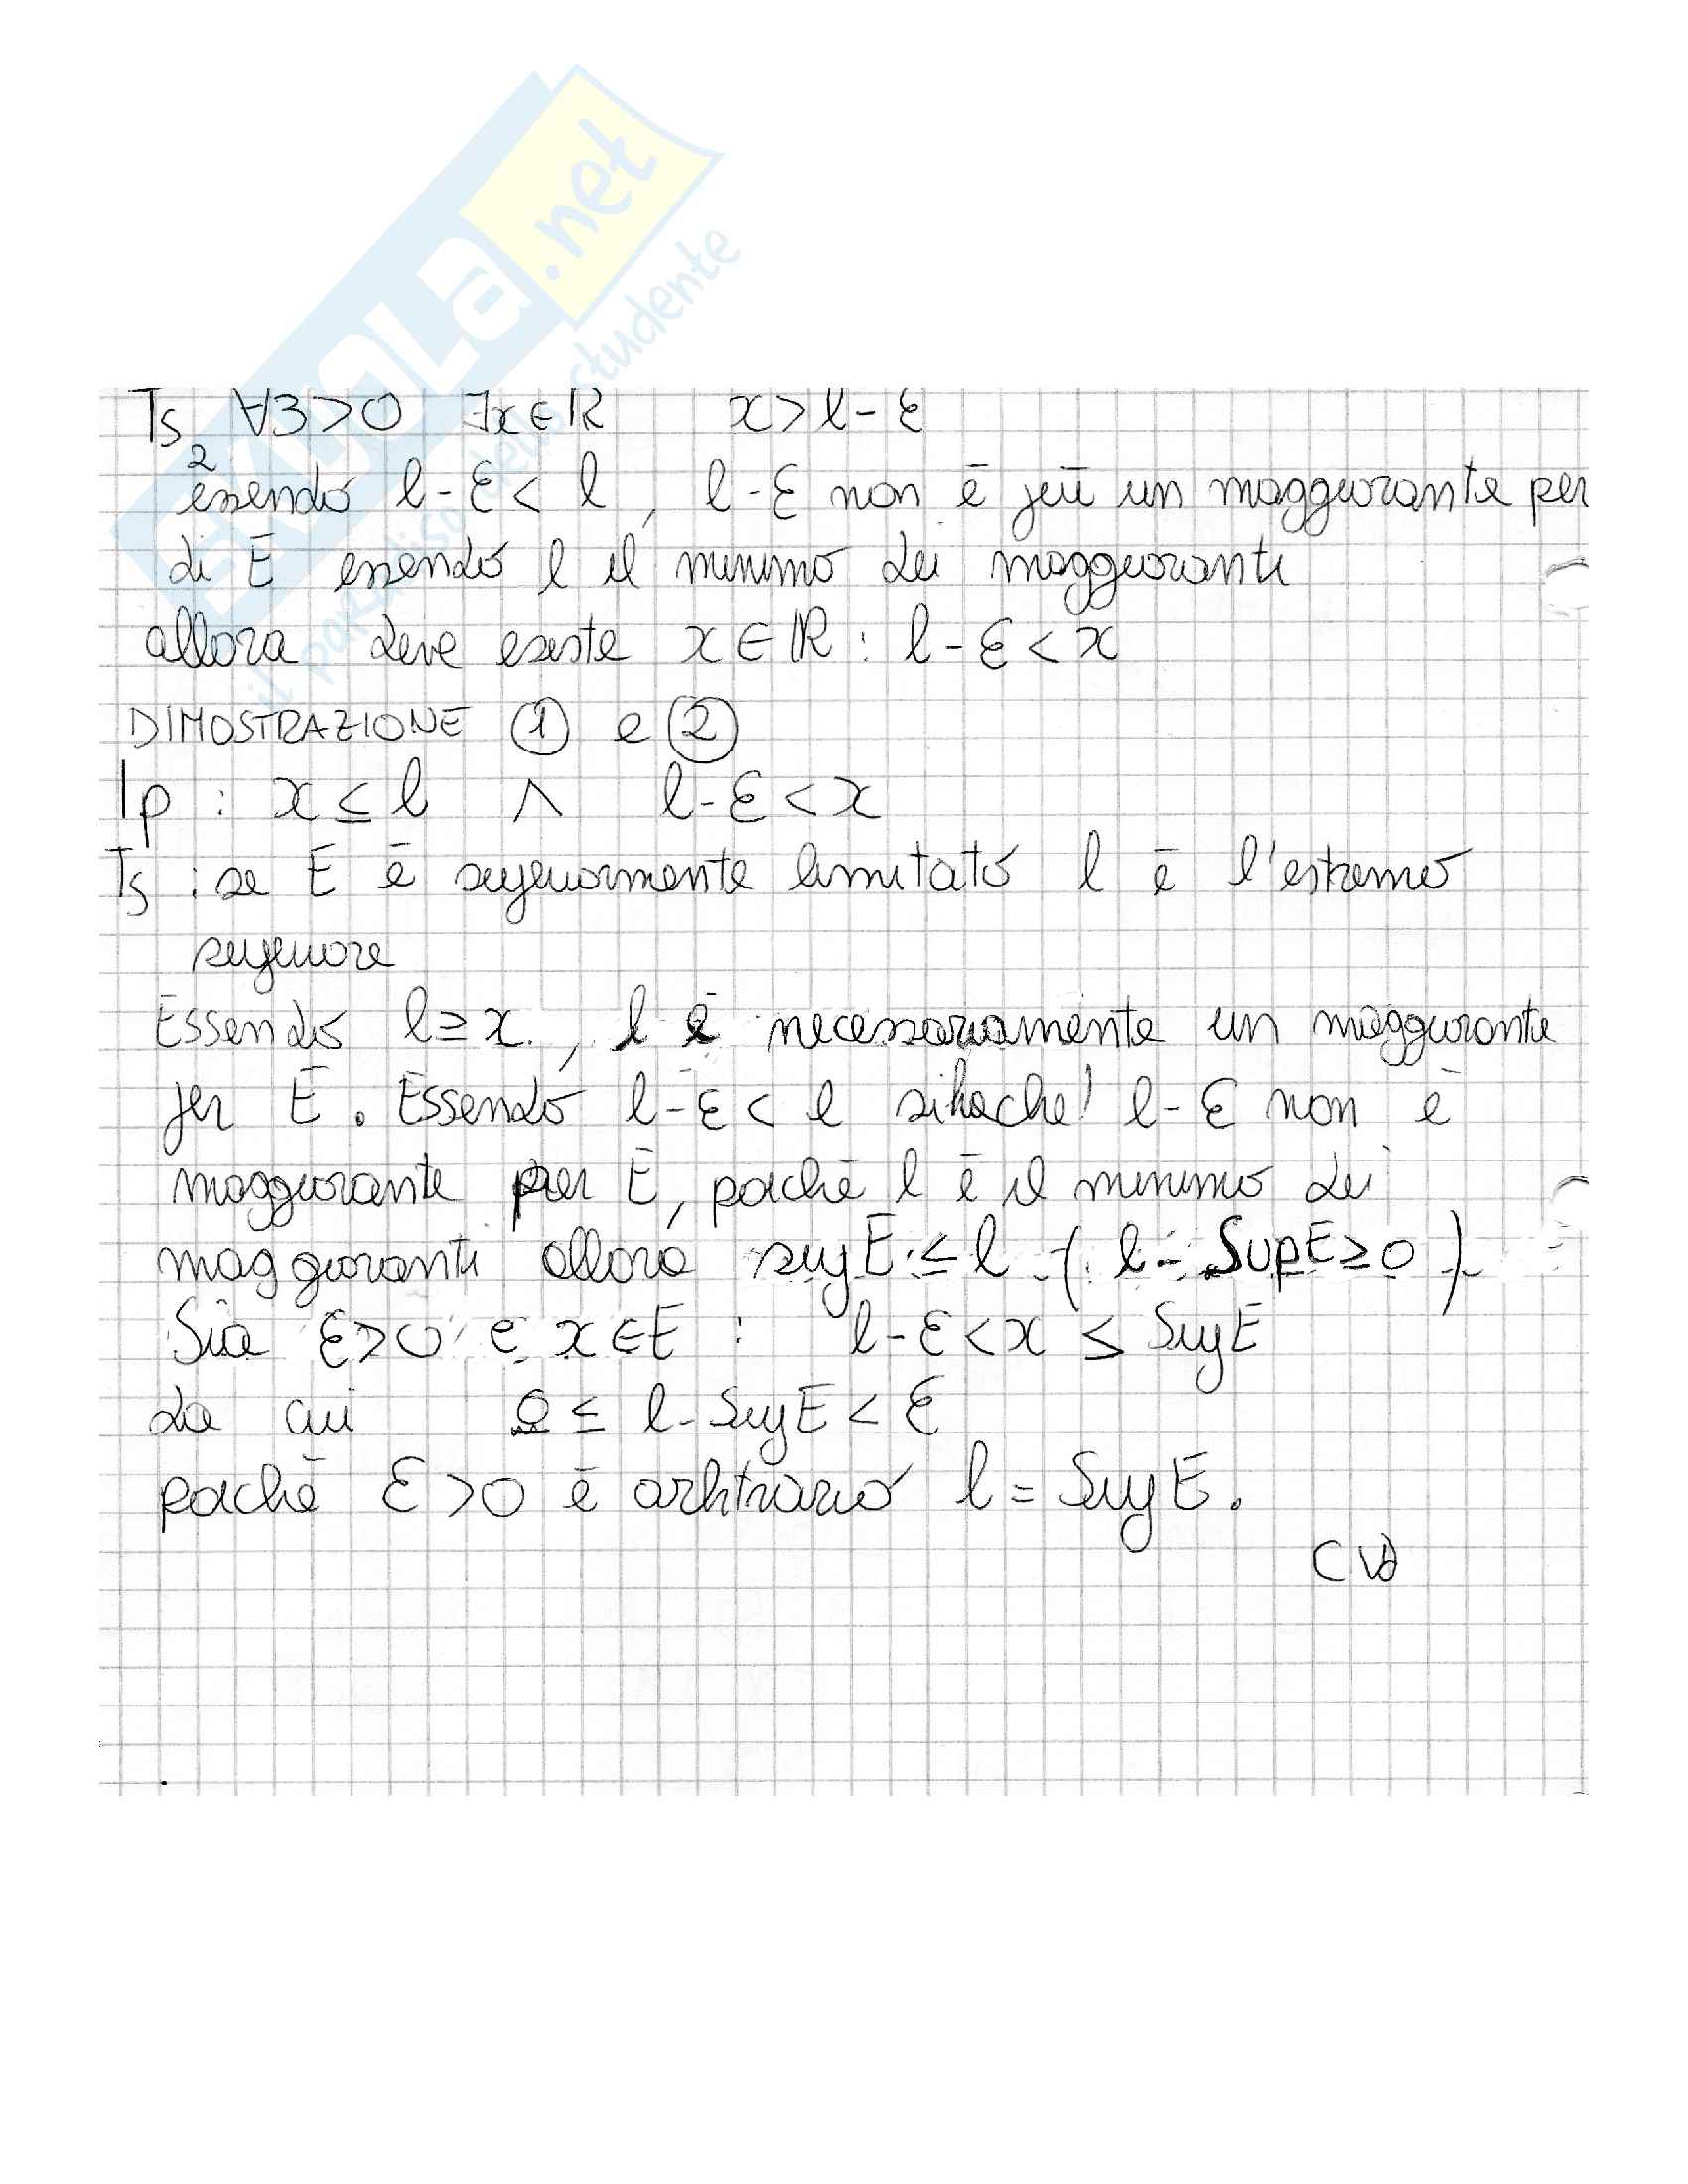 SKUOLA.net
il paradiso dello studente
Ts₂ ∀ε>0 ∃x∈R x>l-ε
essendo l-ε<l, l-ε non è più un maggiorante per
di E essendo l il minimo dei maggioranti
allora deve esiste x∈R : l-ε<x
DIMOSTRAZIONE ① e ②
Ip : x≤l ∧ l-ε<x
Ts : se E è superiormente limitato l è l'estremo
superiore
Essendo l≥x, l è necessariamente un maggiorante
per E. Essendo l-ε<l si ha che l-ε non è
maggiorante per E, poichè l è il minimo dei
maggioranti allora sup E ≤ l (l - Sup E ≥ 0)
Sia ε>0 e x∈E : l-ε<x ≤ Sup E
da cui 0 ≤ l-Sup E < ε
poichè ε>0 è arbitrario l = Sup E.
CVD